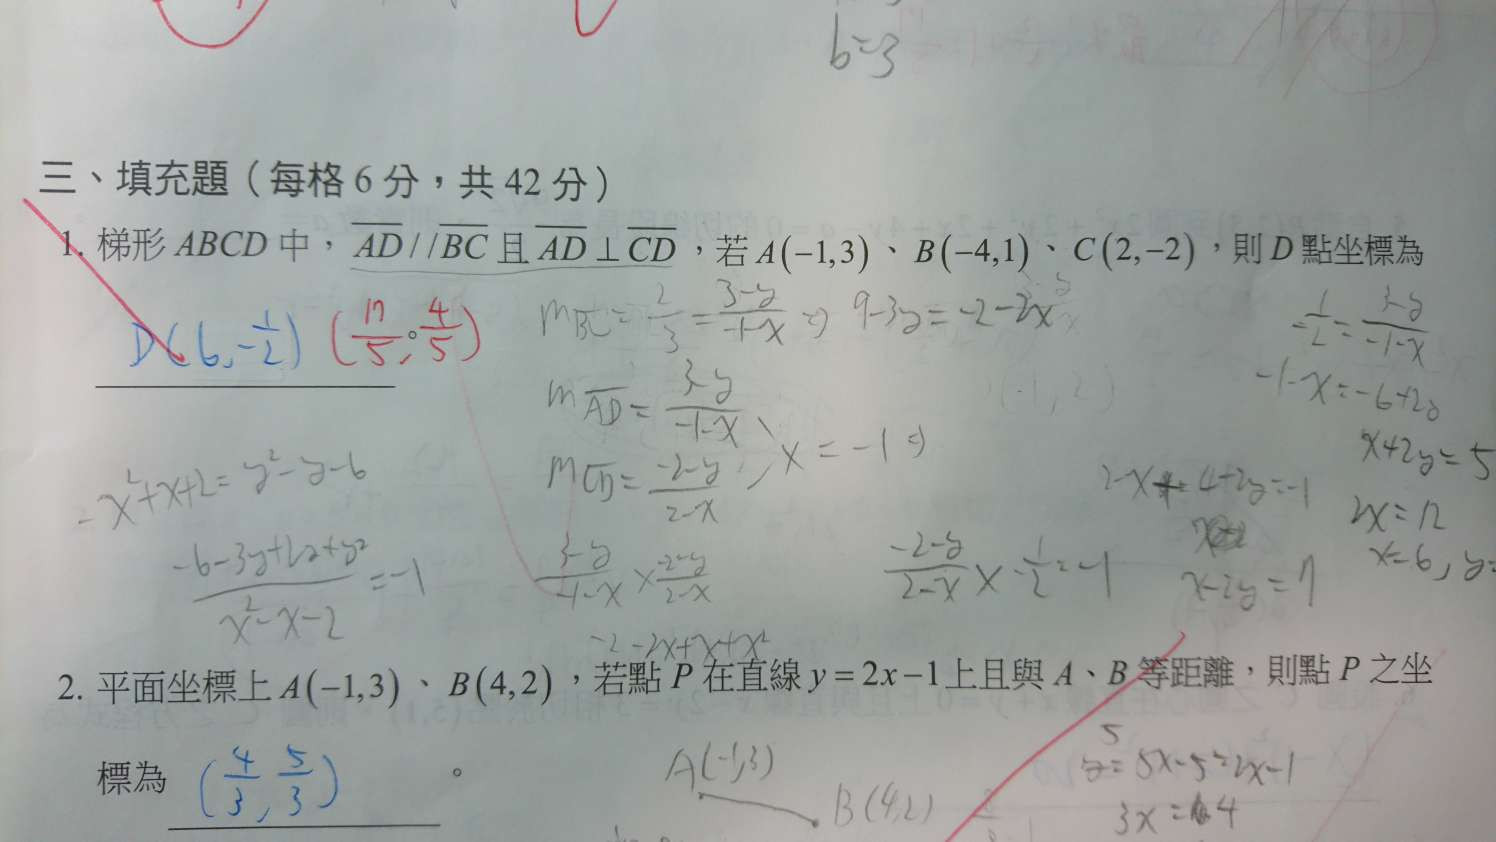 b=3
三、填充題（每格 6 分，共 42 分）
1. 梯形 ABCD 中，AD // BC 且 AD ⊥ CD，若 A(−1,3)、B(−4,1)、C(2,−2)，則 D 點坐標為
D(6, -1/2) (17/5, 4/5) 。
m BC = 2/3 = (3-y)/(-1-x) ⇒ 9-3y = -2-2x
-1/2 = (3-y)/(-1-x)
m AD = (3-y)/(-1-x)
-1-x = -6+2y
m CD = (-2-y)/(2-x)
x = -1 ⇒
x+2y = 5
-x²+x+2 = y²-y-6
2x = 12
x=6, y=
(-6-3y+2y+y²)/(x²-x-2) = -1
(3-y)/(-1-x) × (-2-y)/(2-x)
(-2-y)/(2-x) × -1/2 = -1
x-2y = 7
-2-2x+x+x²
2. 平面坐標上 A(−1,3)、B(4,2)，若點 P 在直線 y = 2x −1上且與 A、B 等距離，則點 P 之坐
標為 (4/3, 5/3) 。
A(-1,3)
B(4,2)
y = 5x-5 = 2x-1
3x = 4